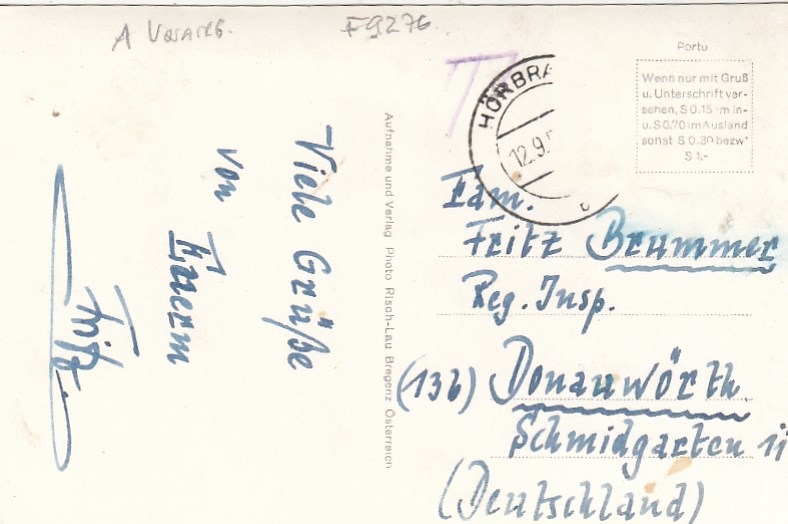 A Vorarlb.
F9276
T
HÖRBRA
12.9.5
Porto
Wenn nur mit Gruß
u. Unterschrift ver-
sehen, S 0.15 im In-
u. S 0.70 im Ausland
sonst S 0.30 bezw.
S 1.-
Viele Grüße
von
Euerm
Fritz
Aufnahme und Verlag Photo Risch-Lau Bregenz Österreich
Fam.
Fritz Brummer
Reg. Insp.
(13b) Donauwörth
Schmidgarten 11
(Deutschland)